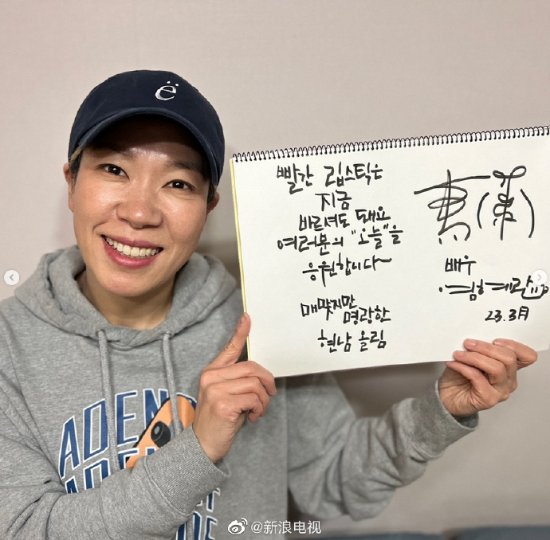 ë
빨간 립스틱은
지금
바르셔도 돼요
여러분의 "오늘"을
응원합니다~
매맞지만
명랑한
현남 올림
배우
염혜란
23. 3月
ADEN
@新浪电视